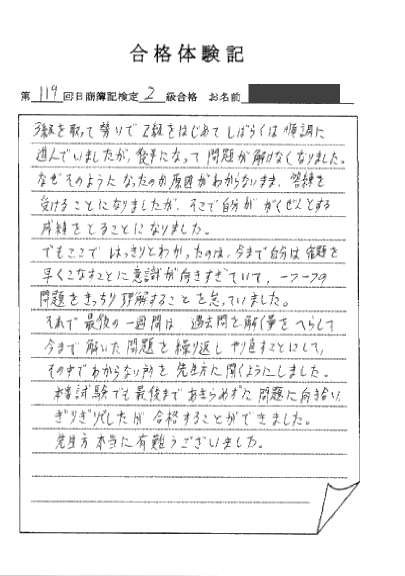 合格体験記
第 119 回日商簿記検定 2 級合格 お名前
3級を取って勢いで2級をはじめてしばらくは順調に
進んでいましたが、後半になって問題が解けなくなりました。
なぜそのようになったのか原因がわからないまま、答練を
受けることになりましたが、そこで自分ががくぜんとする
成績をとることになりました。
でもここではっきりとわかったのは、今まで自分は宿題を
早くこなすことに意識が向きすぎていて、一つ一つの
問題をきっちり理解することを怠っていました。
それで最後の一週間は 過去問を解く量をへらして
今まで解いた問題を繰り返しやり直すことにして、
その中でわからない所を先生方に聞くようにしました。
本試験でも最後まであきらめずに問題に向き合い、
ぎりぎりでしたが合格することができました。
先生方本当に有難うございました。